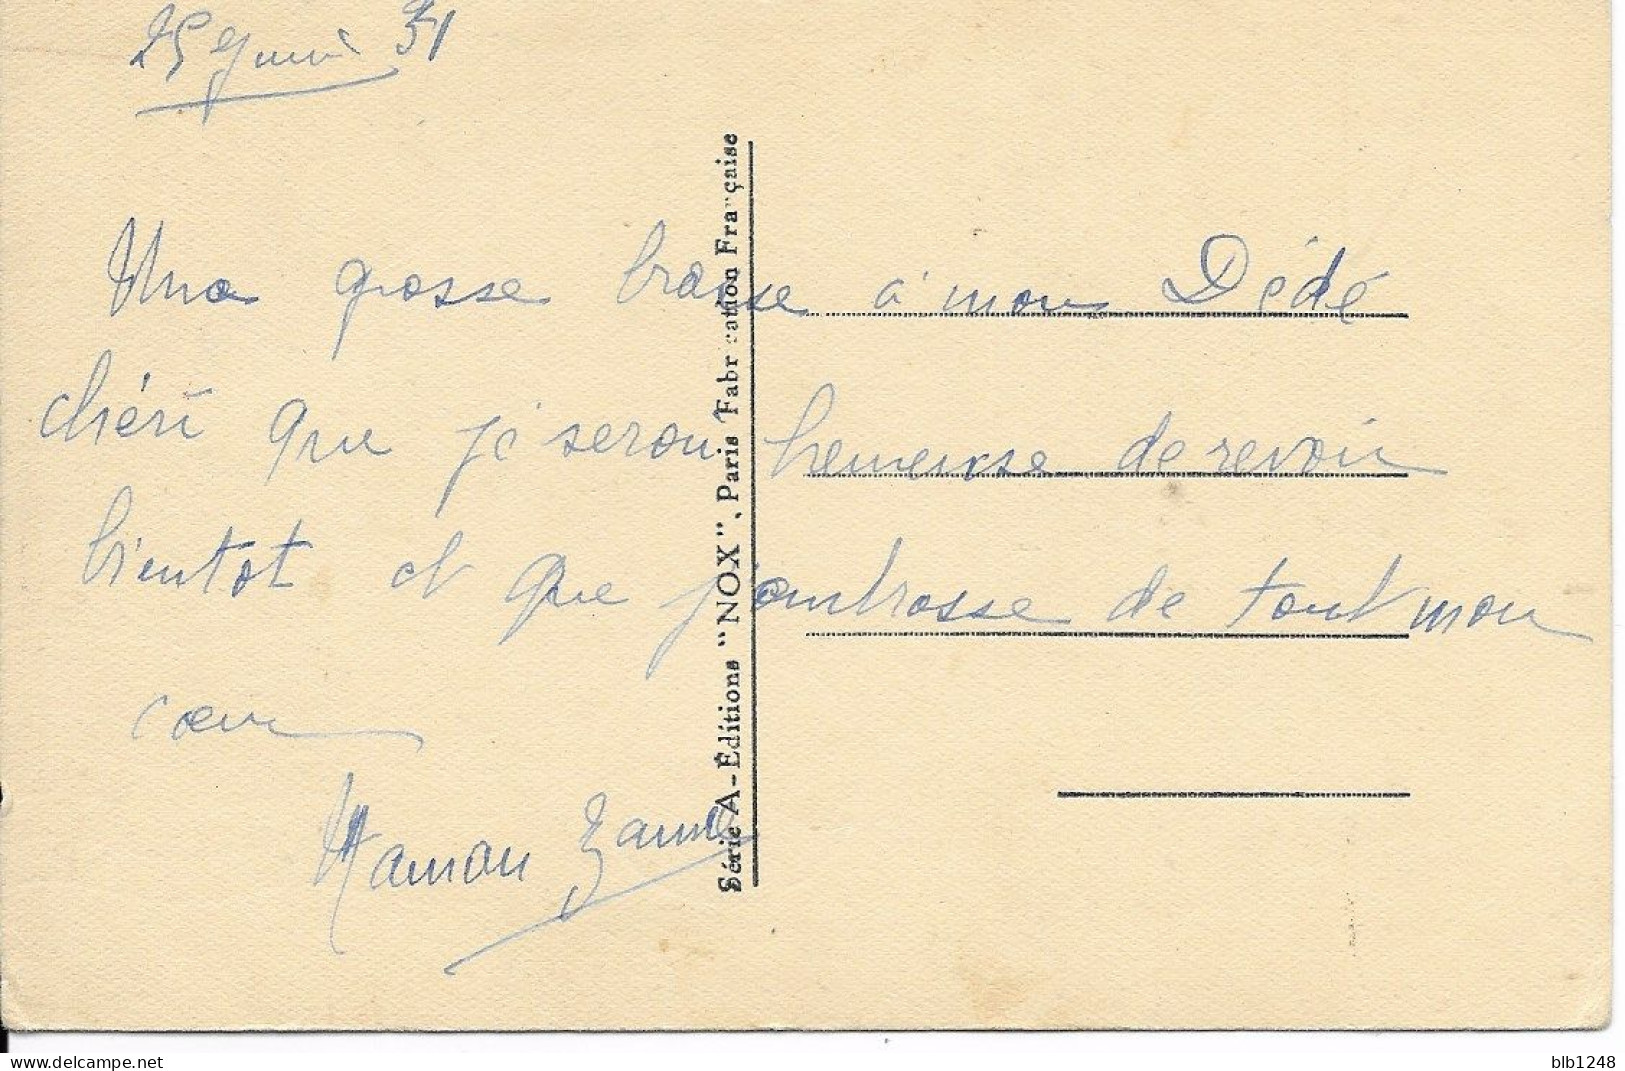 25 31
Une grosse brosse à mon Dédé
chéri que je serai heureuse de revoir
bientot et que j'embrasse de tout mon
coeur
Maman Zaune
Série A - Éditions "NOX", Paris Fabrication Française
www.delcampe.net
blb1248